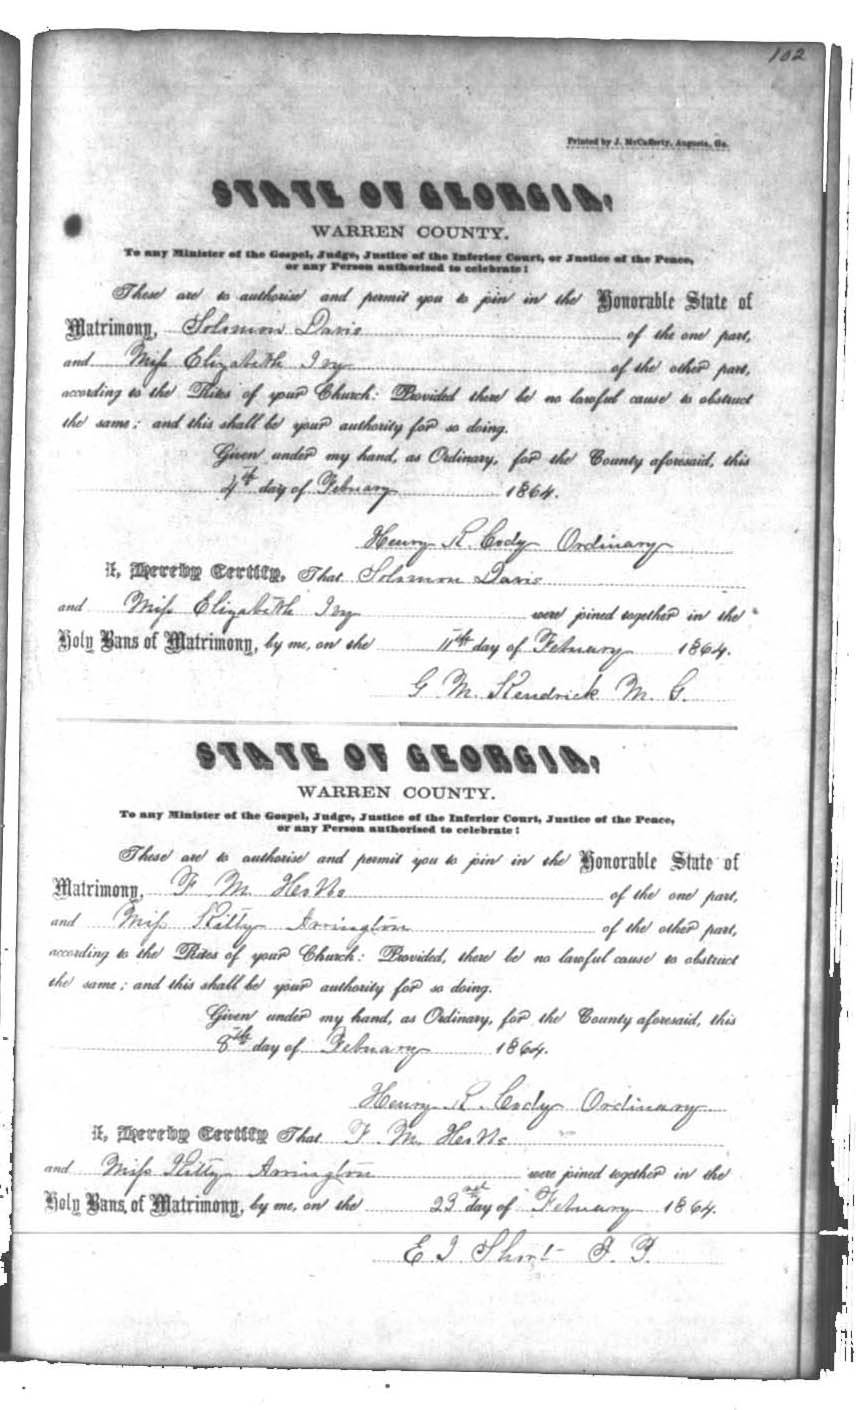 102
Printed by J. McCafferty, Augusta, Ga.
STATE OF GEORGIA,
WARREN COUNTY.
To any Minister of the Gospel, Judge, Justice of the Inferior Court, or Justice of the Peace,
or any Person authorised to celebrate:
These are to authorise and permit you to join in the Honorable State of
Matrimony, Solomon Davis of the one part,
and Miss Elizabeth Ivy of the other part,
according to the Rites of your Church: Provided there be no lawful cause to obstruct
the same; and this shall be your authority for so doing.
Given under my hand, as Ordinary, for the County aforesaid, this
4th day of February 1864.
Henry R. Cody Ordinary
I, Hereby Certify, That Solomon Davis
and Miss Elizabeth Ivy were joined together in the
Holy Bans of Matrimony, by me, on the 11th day of February 1864.
G. M. Kendrick M. G.
STATE OF GEORGIA,
WARREN COUNTY.
To any Minister of the Gospel, Judge, Justice of the Inferior Court, Justice of the Peace,
or any Person authorised to celebrate:
These are to authorise and permit you to join in the Honorable State of
Matrimony, F M of the one part,
and Miss Kitty Arrington of the other part,
according to the Rites of your Church: Provided, there be no lawful cause to obstruct
the same; and this shall be your authority for so doing.
Given under my hand, as Ordinary, for the County aforesaid, this
8th day of Febuary 1864.
Henry R. Cody Ordinary
I, Hereby Certify That F. M.
and Miss Kitty Arrington were joined together in the
Holy Bans, of Matrimony, by me, on the 23 day of February 1864.
E. J. Short J. P.